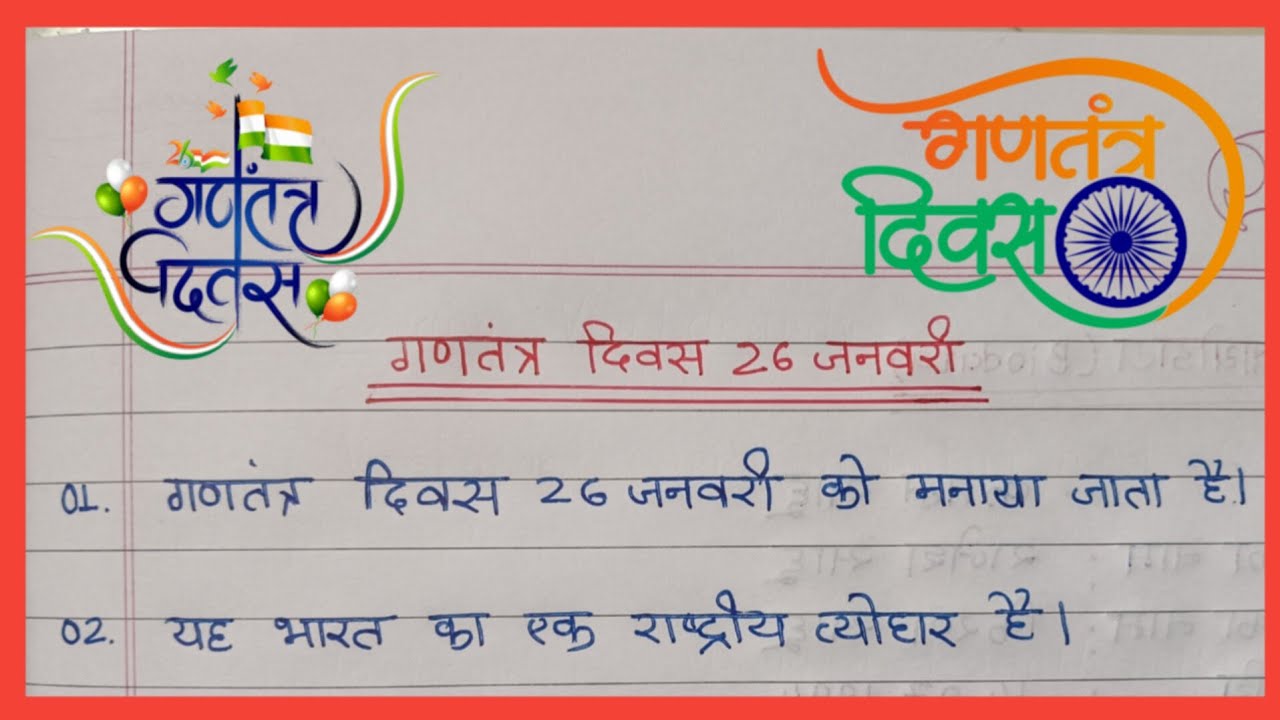 गणतंत्र
दिवस
गणतंत्र
दिवस
गणतंत्र दिवस 26 जनवरी
01. गणतंत्र दिवस 26 जनवरी को मनाया जाता है।
02. यह भारत का एक राष्ट्रीय त्योहार है।